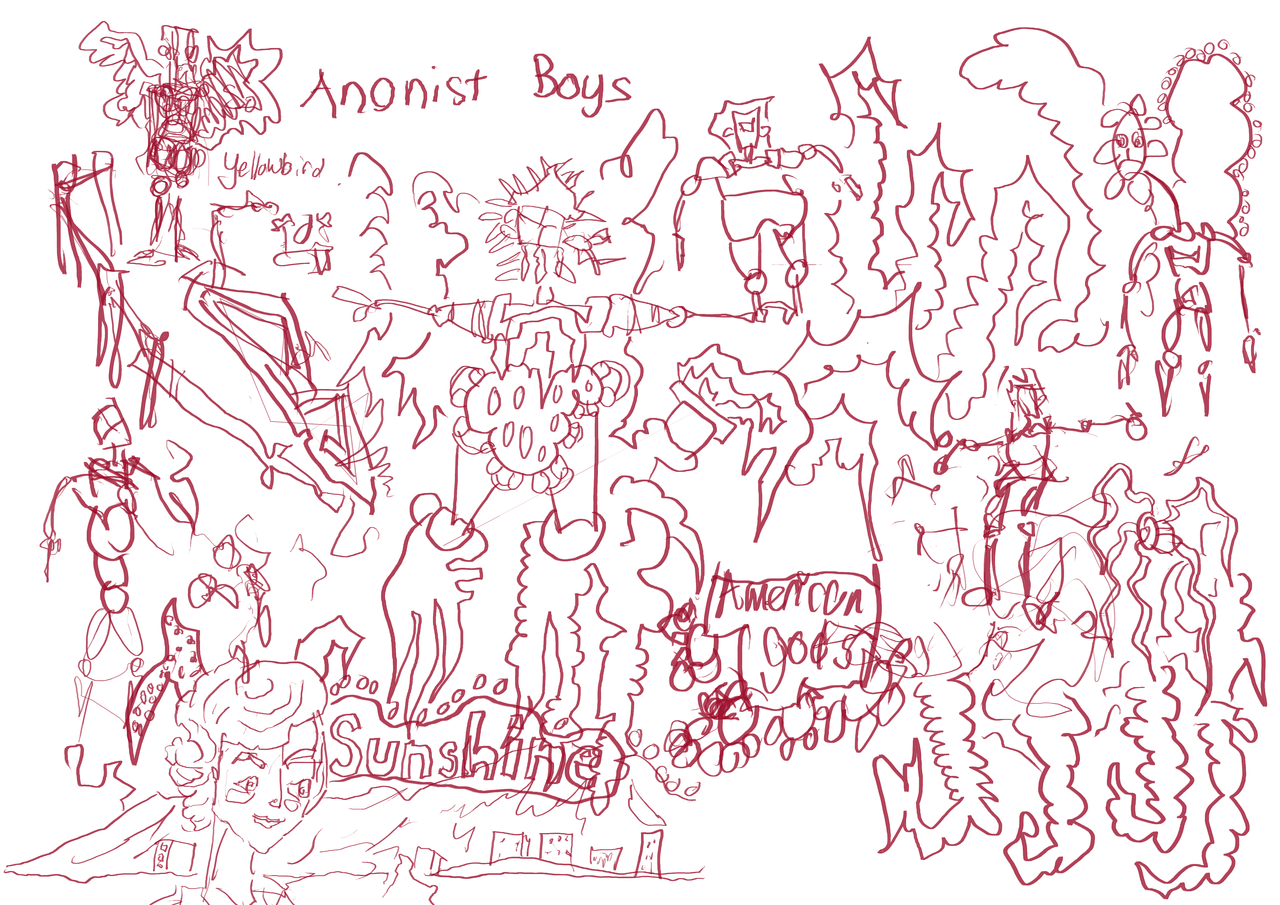 Anonist Boys
Yellowbird
American
gods
Sunshine